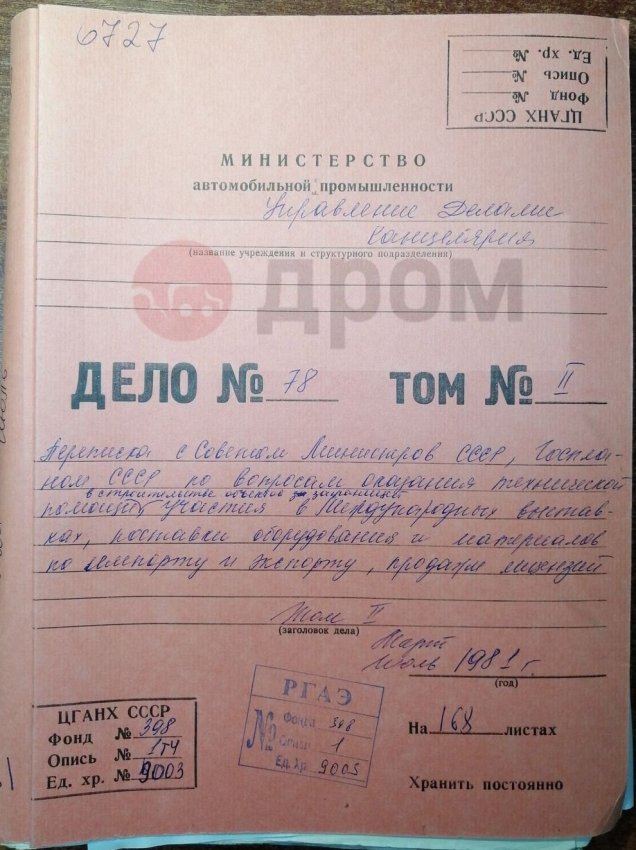 6727
ЦГАНХ СССР
Фонд №
Опись №
Ед. хр. №
МИНИСТЕРСТВО
автомобильной промышленности
Управление Делами
Канцелярия
(название учреждения и структурного подразделения)
дром
ДЕЛО № 78 ТОМ № II
Переписка с Советом Министров СССР, Госпла-
ном СССР по вопросам оказания технической
в строительстве объектов за границей
помощи участия в Международных выстав-
ках, поставки оборудования и материалов
по импорту и экспорту, продажи лицензий
Том II
(заголовок дела)
Март
Июль 1981 г
(год)
ЦГАНХ СССР
Фонд № 398
Опись № 1т4
Ед. хр. № 9003
РГАЭ
№
Фонд 398
Опись 1
Ед. Хр. 9005
На 168 листах
Хранить постоянно